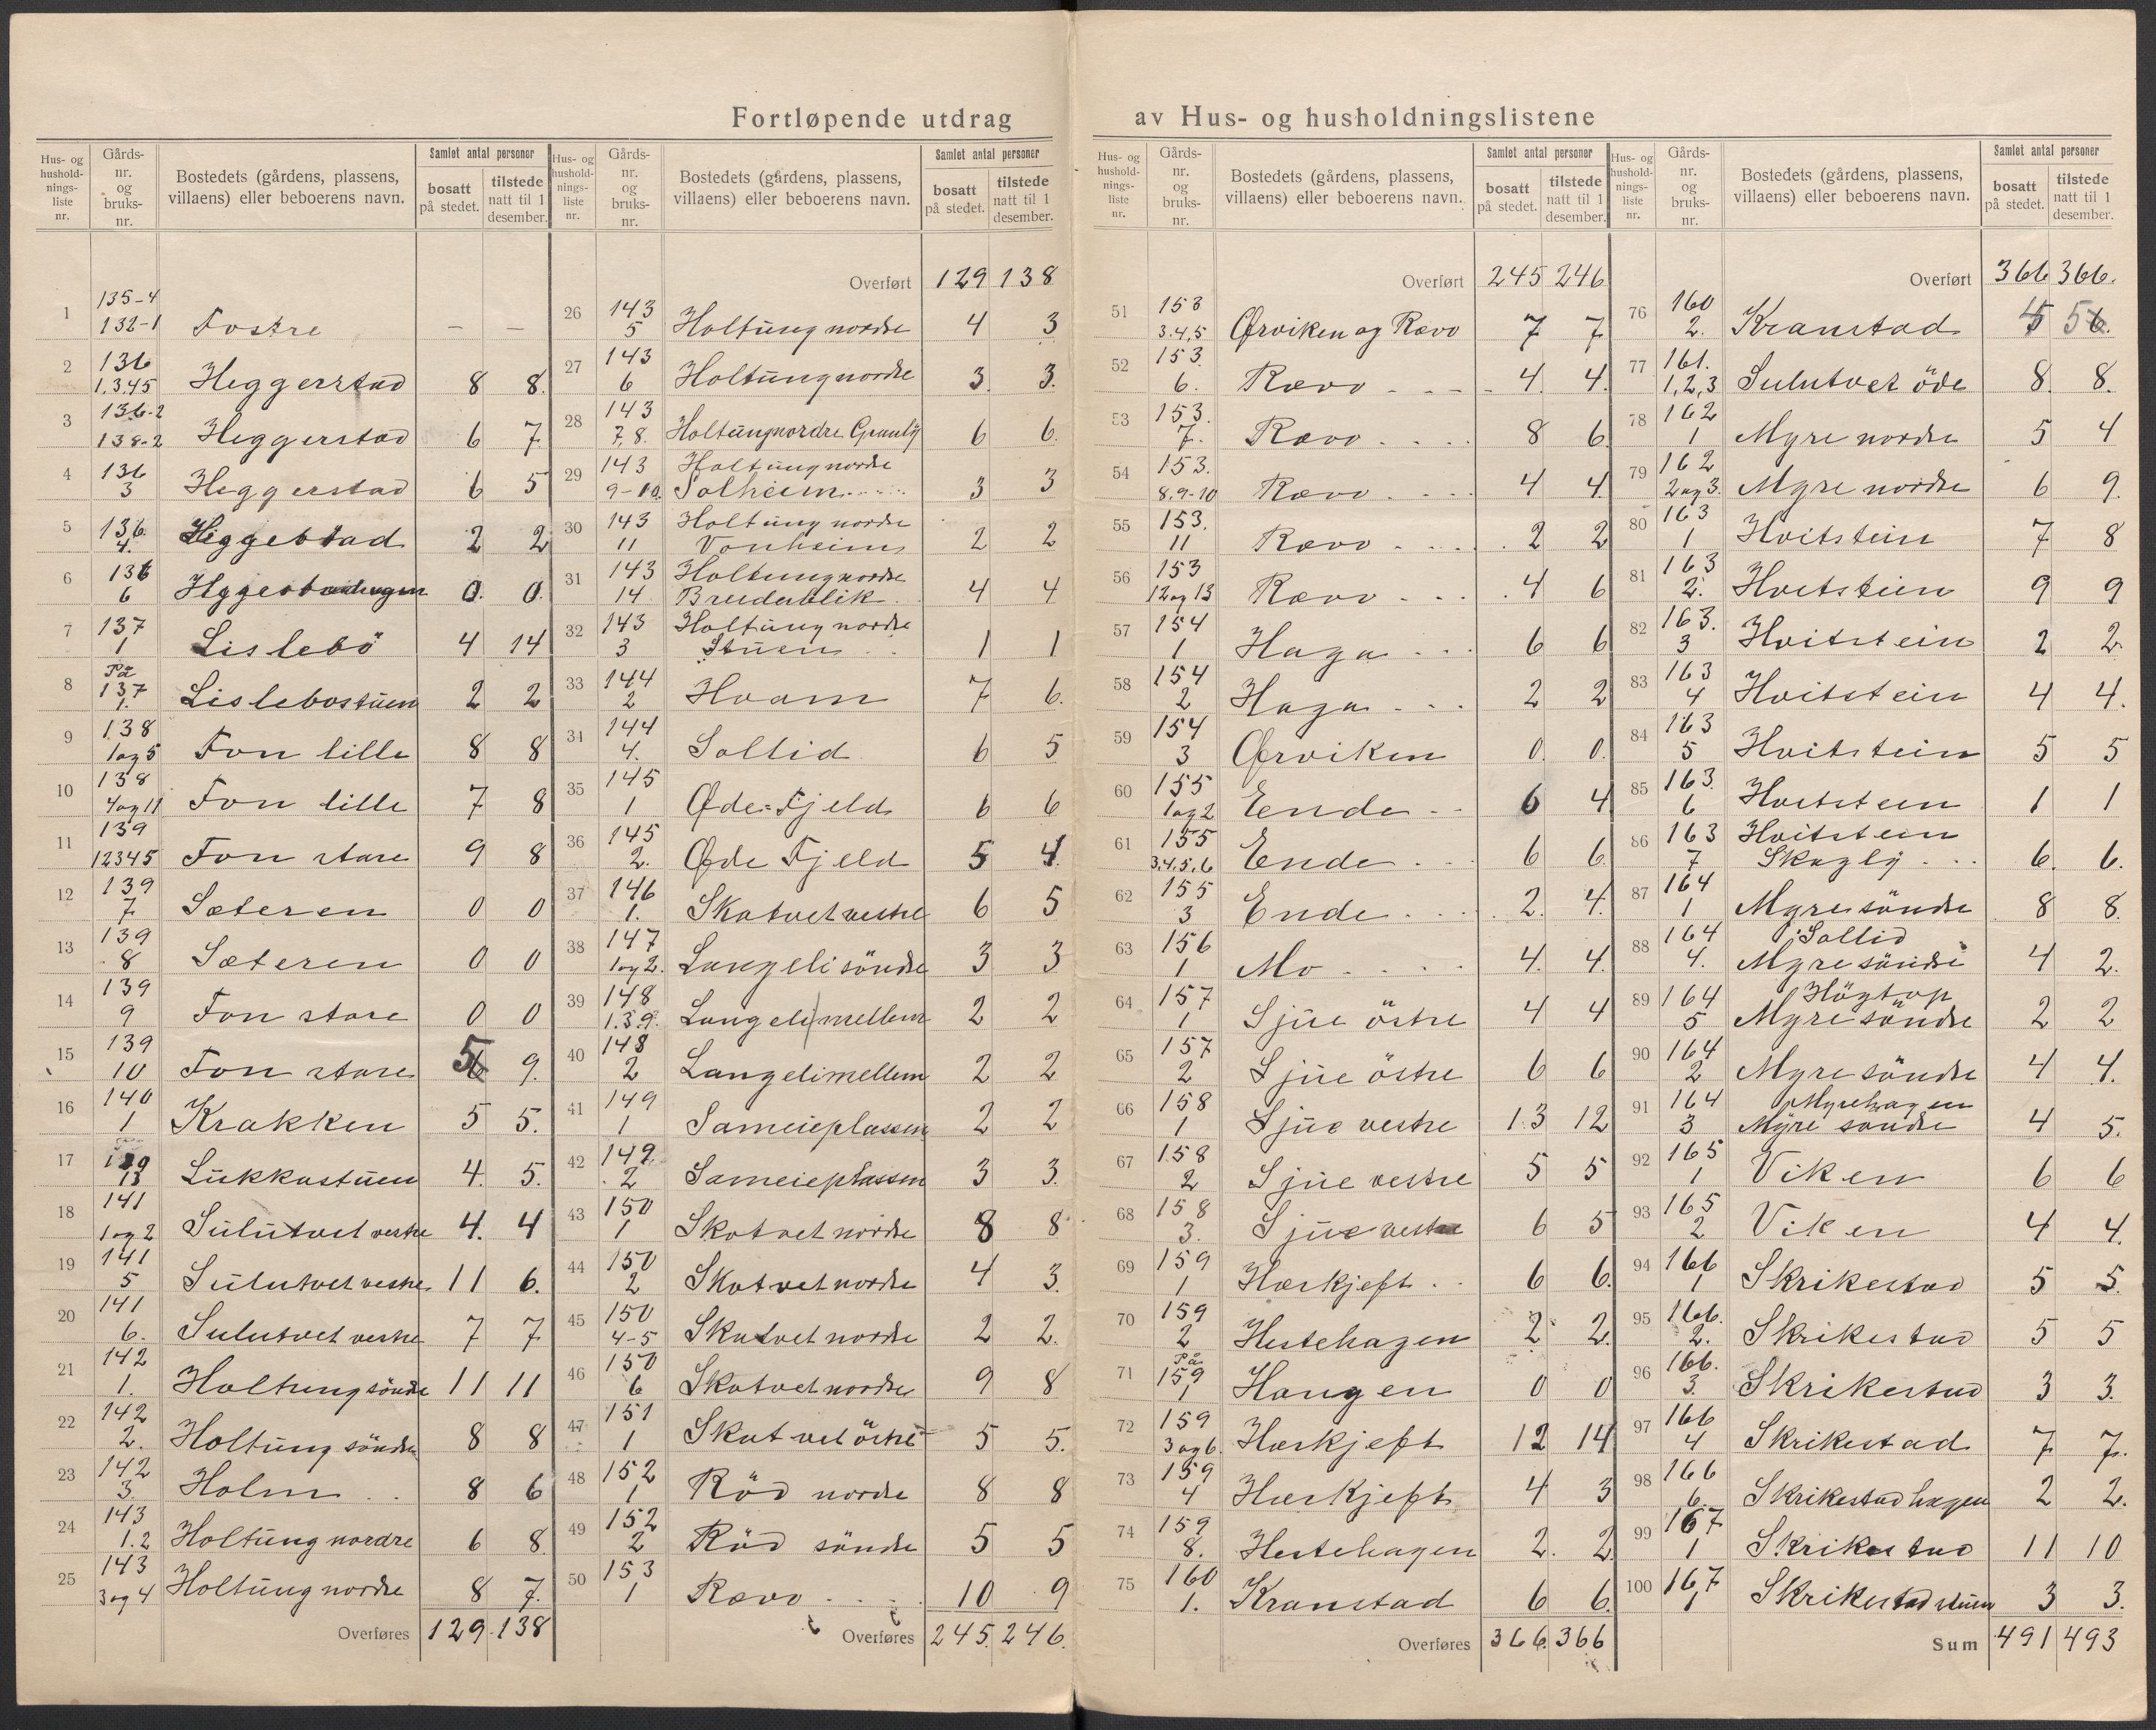 Fortløpende utdrag av Hus- og husholdningslistene
Hus- og hushold-nings-liste nr. | Gårds-nr. og bruks-nr. | Bostedets (gårdens, plassens, villaens) eller beboerens navn. | Samlet antal personer | bosatt på stedet. | tilstede natt til 1 desember.
1 135-4 132-1 Fostre – –
2 136 1.3.45 Heggerstad 8 8.
3 136-2 138-2 Heggerstad 6 7.
4 136 3 Heggerstad 6 5
5 136. 4. Heggestad 2 2
6 136 6 0. 0.
7 137 1 Lislebö 4 14
8 På 137 1. Lislebostuen 2 2
9 138 1og5 Fon lille 8 8
10 138 4og11 Fon lille 7 8
11 139 12345 Fon store 9 8
12 139 7 Sæteren 0 0
13 139 8 Sæteren 0 0
14 139 9 Fon store 0 0
15 139 10 Fon store 5 9.
16 140 1 Krakken 5 5.
17 139 13 Lukkastuen 4. 5.
18 141 1og2 Sulutvet vestre 4. 4
19 141 5 Sulutvet vestre 11 6.
20 141 6. Sulutvet vestre 7 7
21 142 1. Holtung söndre 11 11
22 142 2. Holtung söndre 8 8
23 142 3. Holm 8 6
24 143 1.2 Holtung nordre 6 8.
25 143 3og4 Holtung nordre 8 7.
Overføres 129 138
Hus- og hushold-nings-liste nr. | Gårds-nr. og bruks-nr. | Bostedets (gårdens, plassens, villaens) eller beboerens navn. | Samlet antal personer | bosatt på stedet. | tilstede natt til 1 desember.
Overført 129 138
26 143 5 Holtung nordre 4 3
27 143 6 Holtung nordre 3. 3.
28 143 7, 8. Holtung nordre Granly 6 6.
29 143 9-10. Holtung nordre Solheim 3 3
30 143 11 Holtung nordre Vonheim 2 2
31 143 14 Holtung nordre Breidablik 4 4
32 143 3 Holtung nordre Stuen 1 1
33 144 2 Hvam 7 6.
34 144 4. Sollid 6 5
35 145 1 Øde-Fjeld 6 6
36 145 2. Øde Fjeld 5 4.
37 146 1. Skotvet vestre 6 5
38 147 1og2. Langeli söndre 3 3
39 148 1.3.9. Langeli mellem 2 2
40 148 2 Langeli mellem 2 2
41 149 1 Sameieplassen 2 2
42 149 2 Sameieplassen 3 3.
43 150 1 Skotvet nordre 8 8
44 150 2 Skotvet nordre 4 3.
45 150 4-5 Skotvet nordre 2 2.
46 150 6 Skotvet nordre 9 8
47 151 1 Skotvet östre 5 5.
48 152 1 Röd nordre 8 8
49 152 2 Röd söndre 5 5
50 153 1 Rævo 10 9
Overføres 245. 246.
Hus- og hushold-nings-liste nr. | Gårds-nr. og bruks-nr. | Bostedets (gårdens, plassens, villaens) eller beboerens navn. | Samlet antal personer | bosatt på stedet. | tilstede natt til 1 desember.
Overført 245 246
51 153 3.4,5 Ørviken og Rævo 7 7
52 153. 6. Rævo 4. 4.
53 153. 7. Rævo 8 6.
54 153. 8.9-10 Rævo 4 4.
55 153. 11 Rævo 2 2
56 153 12og13 Rævo 4 6
57 154 1 Haga 6 6
58 154 2 Haga 2 2
59 154 3 Ørviken 0. 0.
60 155 1og2 Ende 6 4
61 155 3,4,5,6 Ende 6 6.
62 155 3 Ende 2. 4.
63 156 1 Mo 4. 4.
64 157 1 Sjue östre 4 4
65 157 2 Sjue östre 6 6
66 158 1 Sjue vestre 13 12
67 158 2 Sjue vestre 5 5
68 158 3. Sjue vestre 6 5
69 159 1 Hærkjeft 6 6.
70 159 2 Hestehagen 2 2.
71 På 159 1 Haugen 0 0
72 159 3og6. Hærkjeft 12 14
73 159 4 Hærkjeft 4 3
74 159 8. Hestehagen 2. 2.
75 160 1. Kranstad 6 6.
Overføres 366. 366
Hus- og hushold-nings-liste nr. | Gårds-nr. og bruks-nr. | Bostedets (gårdens, plassens, villaens) eller beboerens navn. | Samlet antal personer | bosatt på stedet. | tilstede natt til 1 desember.
Overført 366 366.
76 160 2. Kranstad 5
77 161. 1,2,3 Sulutvet öde 8. 8.
78 162 1 Myre nordre 5 4
79 162 2og3. Myre nordre 6 9.
80 163 1 Hvitstein 7 8
81 163 2. Hvitstein 9 9
82 163. 3 Hvitstein 2 2.
83 163 4 Hvitstein 4 4.
84 163 5 Hvitstein 5 5
85 163. 6 Hvitstein 1 1
86 163 7 Hvitstein Skogly 6. 6.
87 164 1 Myre söndre 8 8.
88 164 4. Sollid Myre söndre 4 2.
89 164 5 Högtop Myre söndre 2 2
90 164 2 Myre söndre 4 4.
91 164 3 Myrehagen Myre söndre 4 5.
92 165 1 Viken 6 6
93 165 2 Viken 4 4.
94 166 1 Skrikestad 5 5.
95 166. 2. Skrikestad 5 5
96 166. 3. Skrikestad 3 3.
97 166 4 Skrikestad 7 7.
98 166 6. Skrikestad hagen 2 2.
99 167 1 Skrikestad 11 10
100 167 1 Skrikestad stuen 3 3.
Sum 491 493